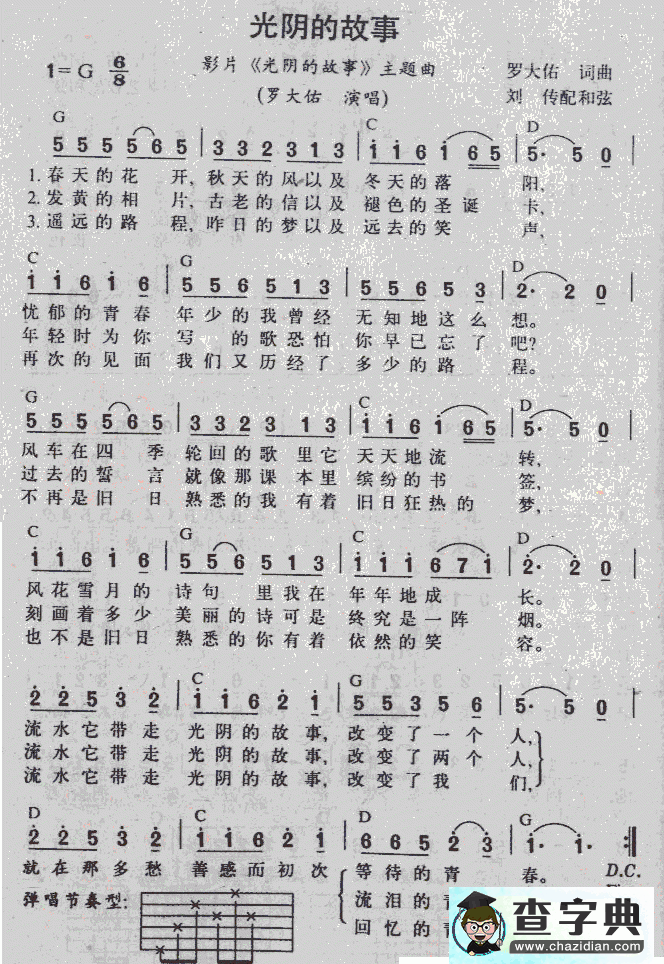 光阴的故事
1=G 6/8 影片《光阴的故事》主题曲 罗大佑 词曲
(罗大佑 演唱) 刘 传配和弦
G C D
5 5 5 5 6 5 | 3 3 2 3 1 3 | i i 6 i 6 5 | 5· 5 0 |
1. 春天的花 开, 秋天的风以及 冬天的落 阳,
2. 发黄的相 片, 古老的信以及 褪色的圣诞 卡,
3. 遥远的路 程, 昨日的梦以及 远去的笑 声,
C G D
i i 6 i 6 | 5 5 6 5 1 3 | 5 5 6 5 3 | 2· 2 0 |
忧郁的青春 年少的我曾经 无知地这么 想。
年轻时为你 写 的歌恐怕 你早已忘了 吧?
再次的见面 我们又历经了 多少的路 程。
G C D
5 5 5 5 6 5 | 3 3 2 3 1 3 | i i 6 i 6 5 | 5· 5 0 |
风车在四 季 轮回的歌 里它 天天地流 转,
过去的誓 言 就像那课 本里 缤纷的书 签,
不再是旧 日 熟悉的我 有着 旧日狂热的 梦,
C G C D
i i 6 i 6 | 5 5 6 5 1 3 | i i i 6 7 i | 2· 2 0 |
风花雪月的 诗句 里我在 年年地成 长。
刻画着多少 美丽的诗可是 终究是一阵 烟。
也不是旧日 熟悉的你有着 依然的笑 容。
D C G
2 2 5 3 2 | i i 6 2 i | 5 5 3 5 6 | 5· 5 0 |
流水它带走 光阴的故事, 改变了一个 人,
流水它带走 光阴的故事, 改变了两个 人,
流水它带走 光阴的故事, 改变了我 们,
D C D G
2 2 5 3 2 | i i 6 2 i | 6 6 5 2 3 | i· i· :||
就在那多愁 善感而初次 等待的青 春。 D.C.
弹唱节奏型: 流泪的
回忆的
查字典
www.chazidian.com